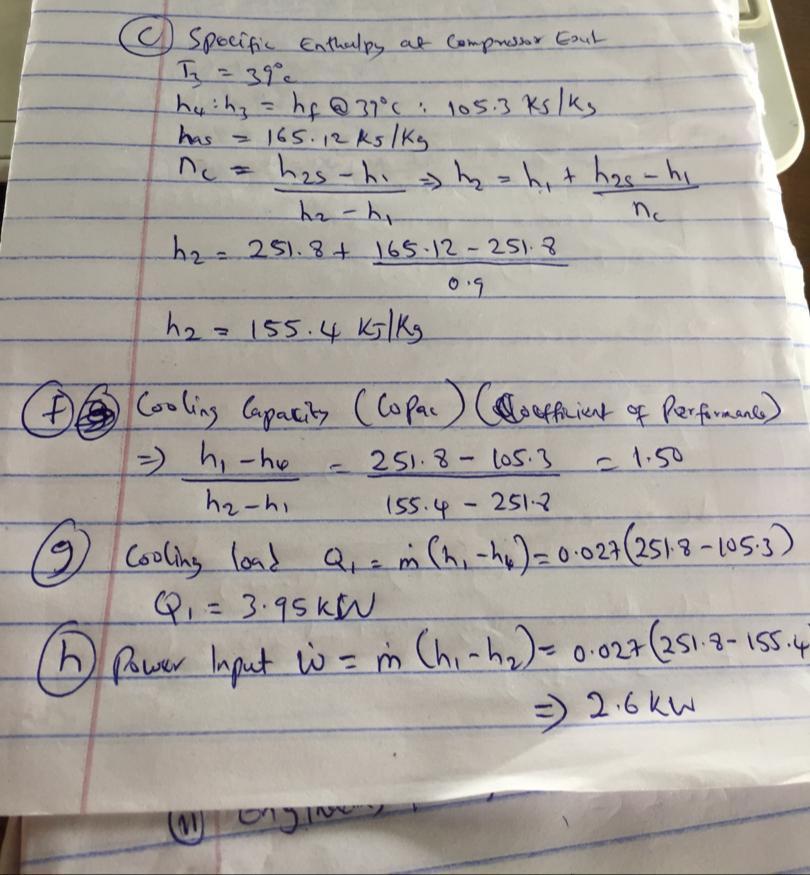 (c) Specific Enthalpy at Compressor Exit
T3 = 39°c
h4 : h3 = hf @ 39°c : 105.3 KJ/Kg
has = 165.12 KJ/Kg
nc = (h2s - h1)/(h2 - h1) ⇒ h2 = h1 + (h2s - h1)/nc
h2 = 251.8 + (165.12 - 251.8)/0.9
h2 = 155.4 KJ/Kg
(f) Cooling Capacity (Copac) (Coefficient of Performance)
⇒ (h1 - h4)/(h2 - h1) = (251.8 - 105.3)/(155.4 - 251.8) = 1.50
(g) Cooling load Q1 = ṁ(h1 - h4) = 0.027(251.8 - 105.3)
Q1 = 3.95 kW
(h) Power Input ẇ = ṁ (h1 - h2) = 0.027(251.8 - 155.4
⇒ 2.6 KW